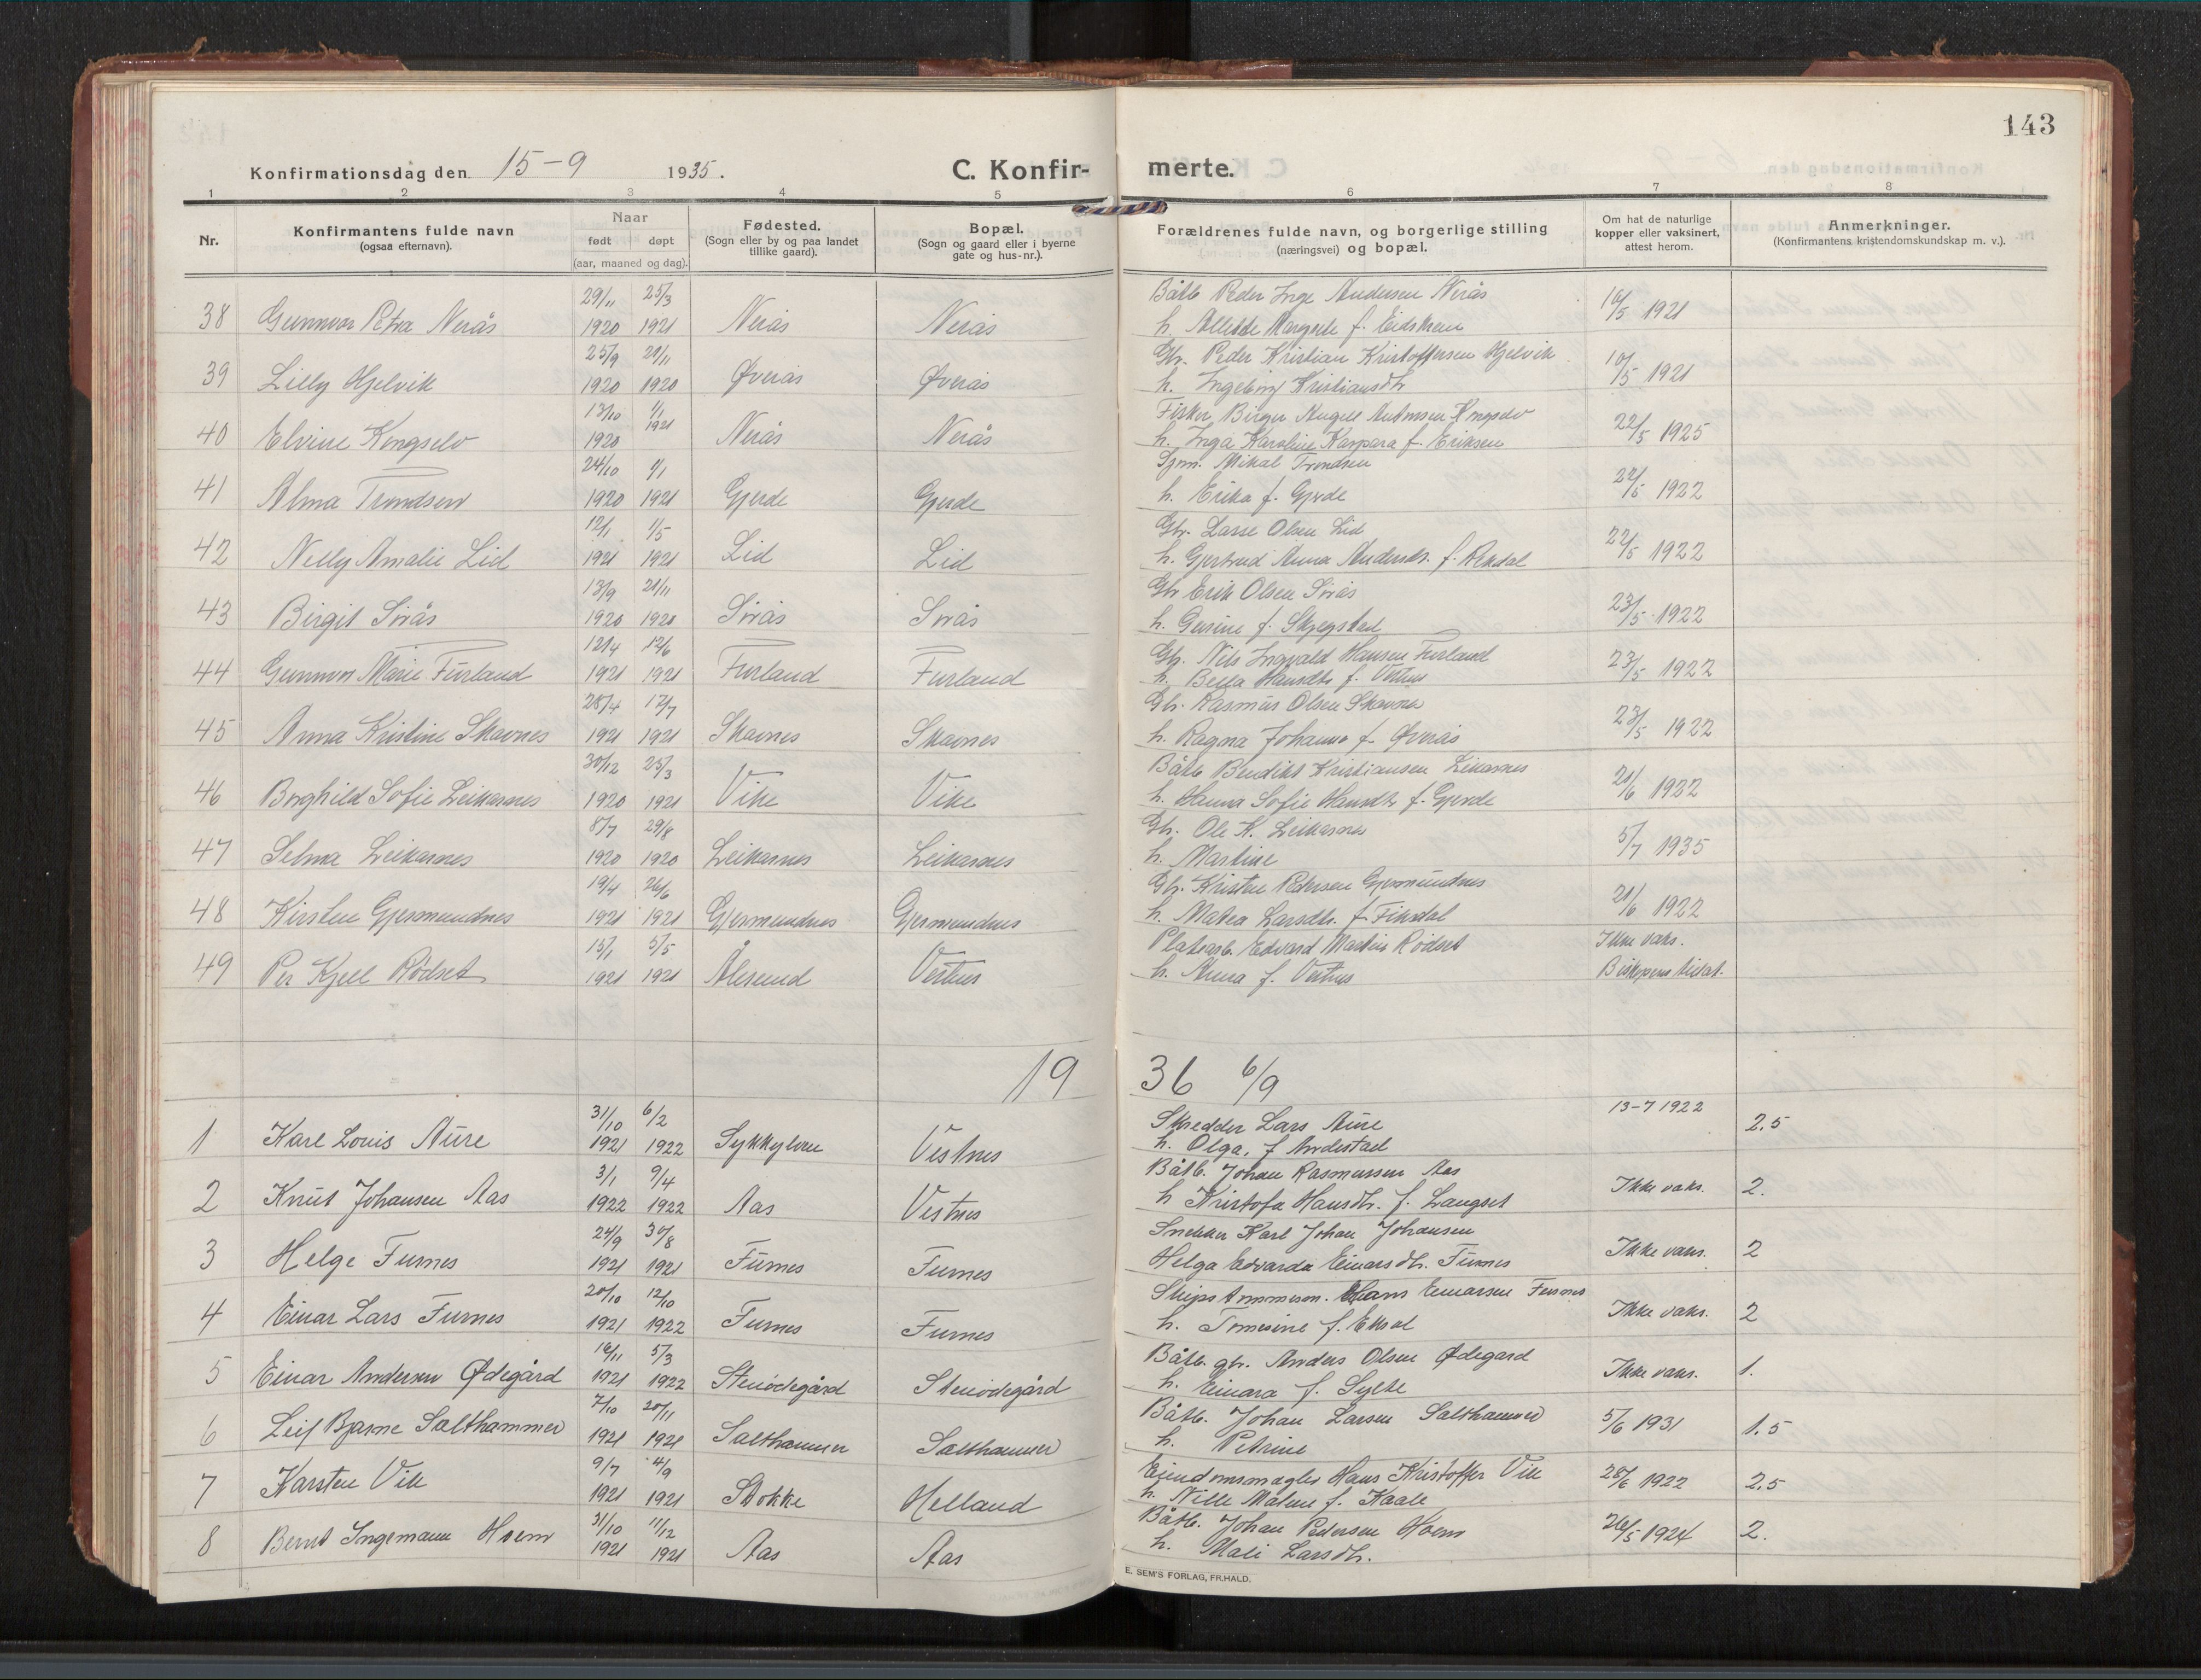 143
Konfirmationsdag den 15-9 1935.
C. Konfirmerte.
1 2 3 4 5 6 7 8
Nr.
Konfirmantens fulde navn
(ogsaa efternavn).
Naar
født døpt
(aar, maaned og dag).
Fødested.
(Sogn eller by og paa landet
tillike gaard).
Bopæl.
(Sogn og gaard eller i byerne
gate og hus-nr.).
Forældrenes fulde navn, og borgerlige stilling
(næringsvei) og bopæl.
Om hat de naturlige
kopper eller vaksinert,
attest herom.
Anmerkninger.
(Konfirmantens kristendomskundskap m. v.).
29/11 25/3 Båtb. Peder Inge Andersen Nerås
38 Gunnvor Petra Nerås 1920 1921 Nerås Nerås h. Margrete f. Eidskrem 10/5 1921
25/9 21/11 Gbr. Peder Kristian Kristoffersen Hjelvik
39 Lilly Hjelvik 1920 1920 Øverås Øverås h. Ingeborg Kristiansdtr 10/5 1921
13/10 1/1 Fisker Birger Angell Antonsen Kongselv
40 Elvine Kongselv 1920 1921 Nerås Nerås h. Inga Karoline Kaspara f. Eriksen 22/5 1925
24/10 1/1 Mikal Trondsen
41 Alma Trondsen 1920 1921 Gjerde Gjerde h. Erika f. Gjerde 22/5 1922
12/1 1/5 Gbr. Lasse Olsen Lid
42 Nelly Amalie Lid 1921 1921 Lid Lid h. Gjertrud Anna Andersdtr. f. Rekdal 22/5 1922
13/9 21/11 Gbr Erik Olsen Sørås
43 Birgit Sørås 1920 1920 Sørås Sørås h. Gurine f. Skjegstad 23/5 1922
12/4 12/6 Gbr. Nils Ingvald Hansen Furland
44 Gunnvor Marie Furland 1921 1921 Furland Furland h. Berta Hansdtr f. Vestnes 23/5 1922
28/4 17/7 Gbr. Rasmus Olsen Skavnes
45 Anna Kristine Skavnes 1921 1921 Skavnes Skavnes h. Ragna Johanna f. Øverås 23/5 1922
30/12 25/3 Båtb Bendikt Kristiansen Leikarnes
46 Borghild Sofie Leikarnes 1920 1921 Vike Vike h. Hanna Sofie Hansdtr f. Gjerde 21/6 1922
8/7 29/8 Gbr. Ole K. Leikarnes
47 Selma Leikarnes 1920 1920 Leikarnes Leikarnes h. Martine 5/7 1935
19/4 26/6 Gbr. Kristen Pedersen Gjermundnes
48 Kirsten Gjermundnes 1921 1921 Gjermundnes Gjermundnes h. Matea Larsdtr. f. Fiksdal 21/6 1922
15/1 5/5 Platearb. Edvard Martin Rødset Ikke vaks.
49 Per Kjell Rødset 1921 1921 Ålesund Vestnes h. Anna f. Vestnes Biskopens tillat.
19 36 6/9
31/10 6/2 Skredder Lars Aure 13-7 1922
1 Kare Louis Aure 1921 1922 Sykkylven Vestnes h. Olga, f Andestad 2.5
3/1 9/4 Båtb. Johan Rasmussen Aas
2 Knut Johansen Aas 1922 1922 Aas Vestnes h Kristofa Hansdtr. f. Langset Ikke vaks. 2.
24/9 30/8 Snekker Karl Johan Johansen
3 Helge Furnes 1921 1921 Furnes Furnes Helga Edvarda Einarsdtr. Furnes Ikke vaks. 2
20/10 12/10 Skipstømmerm. Hans Einarsen Furnes
4 Einar Lars Furnes 1921 1922 Furnes Furnes h. Tomesine f. Ikke vaks. 2
16/11 5/3 Båtb. gbr. Anders Olsen Ødegård
5 Einar Andersen Ødegård 1921 1922 Stenødegård Stenødegård h. Einara f. Sylte Ikke vaks. 1.
7/10 20/11 Båtb. Johan Larsen Salthammer
6 Leif Bjarne Salthammer 1921 1921 Salthammer Salthammer h. Petrine 5/6 1931 1.5
9/7 4/9 Eiendomsmegler Hans Kristoffer Vik
7 Karsten Vik 1921 1921 Stokke Helland h. Nille Malene f. Kaale 28/6 1922 2.5
31/10 11/12 Båtb. Johan Pedersen Hoem
8 Bernt Ingemann Hoem 1921 1921 Aas Aas h. Mali Larsdtr. 26/5 1924 2.
E. SEM'S FORLAG, FR.HALD.